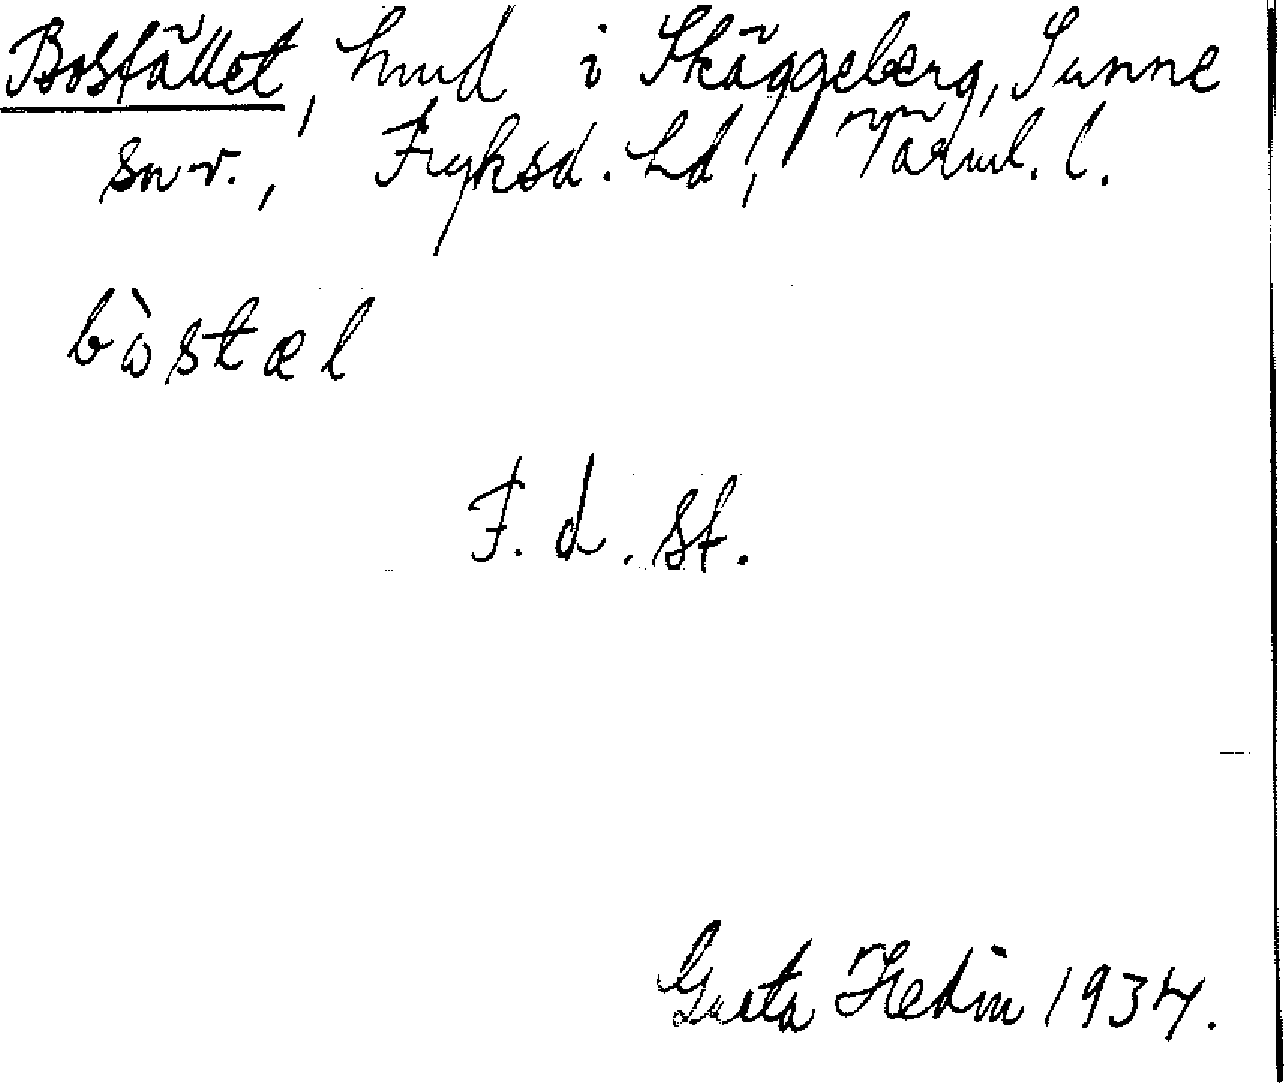 Bostället, hmd i Skäggeberg, Sunne
sn v., Fryksd. hd, Värml. l.
bòstæl
F. d. st.
Gösta Hedin 1934.